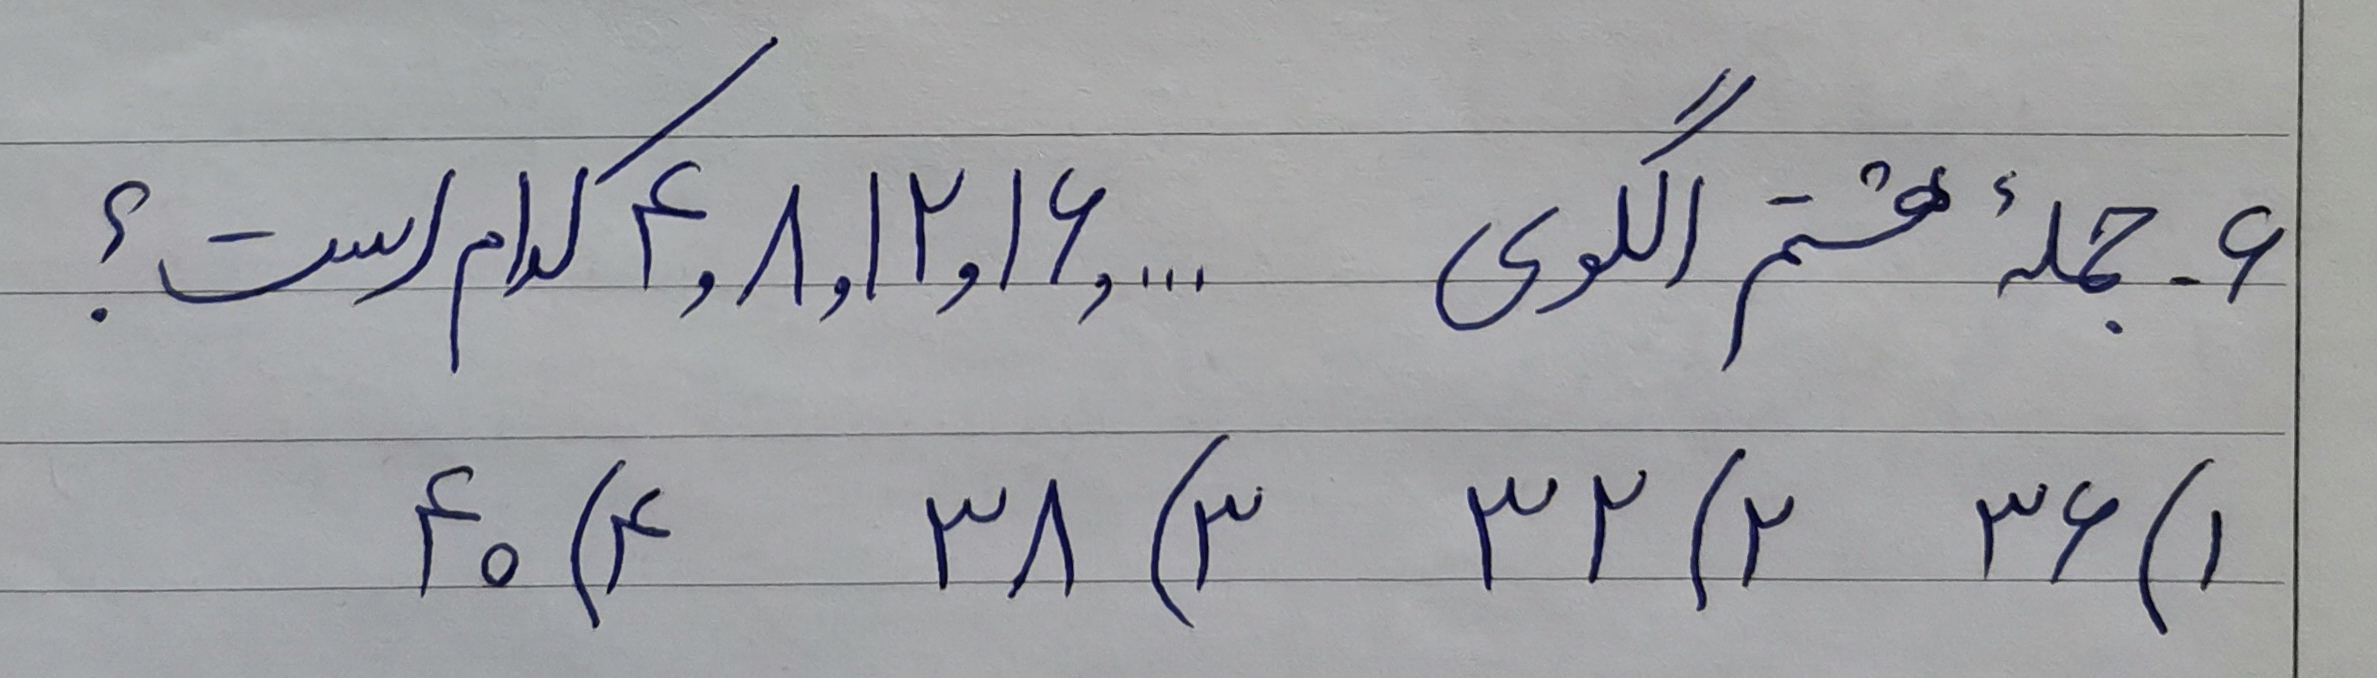 ۶- جملهٔ هشتم الگوی ۴,۸,۱۲,۱۶,... کدام است؟
۱) ۳۶ ۲) ۳۲ ۳) ۳۸ ۴) ۴۰